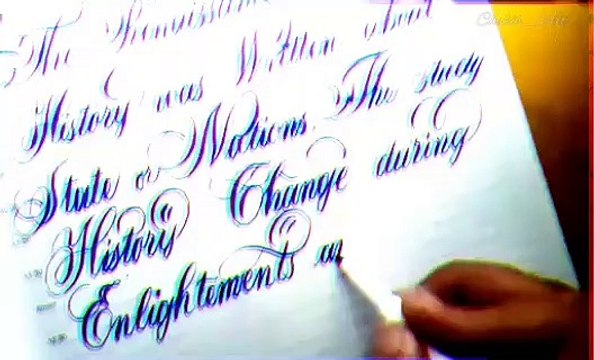 The Renaissance
History was Written about
State or Nations. The study
History Change during
Enlightements